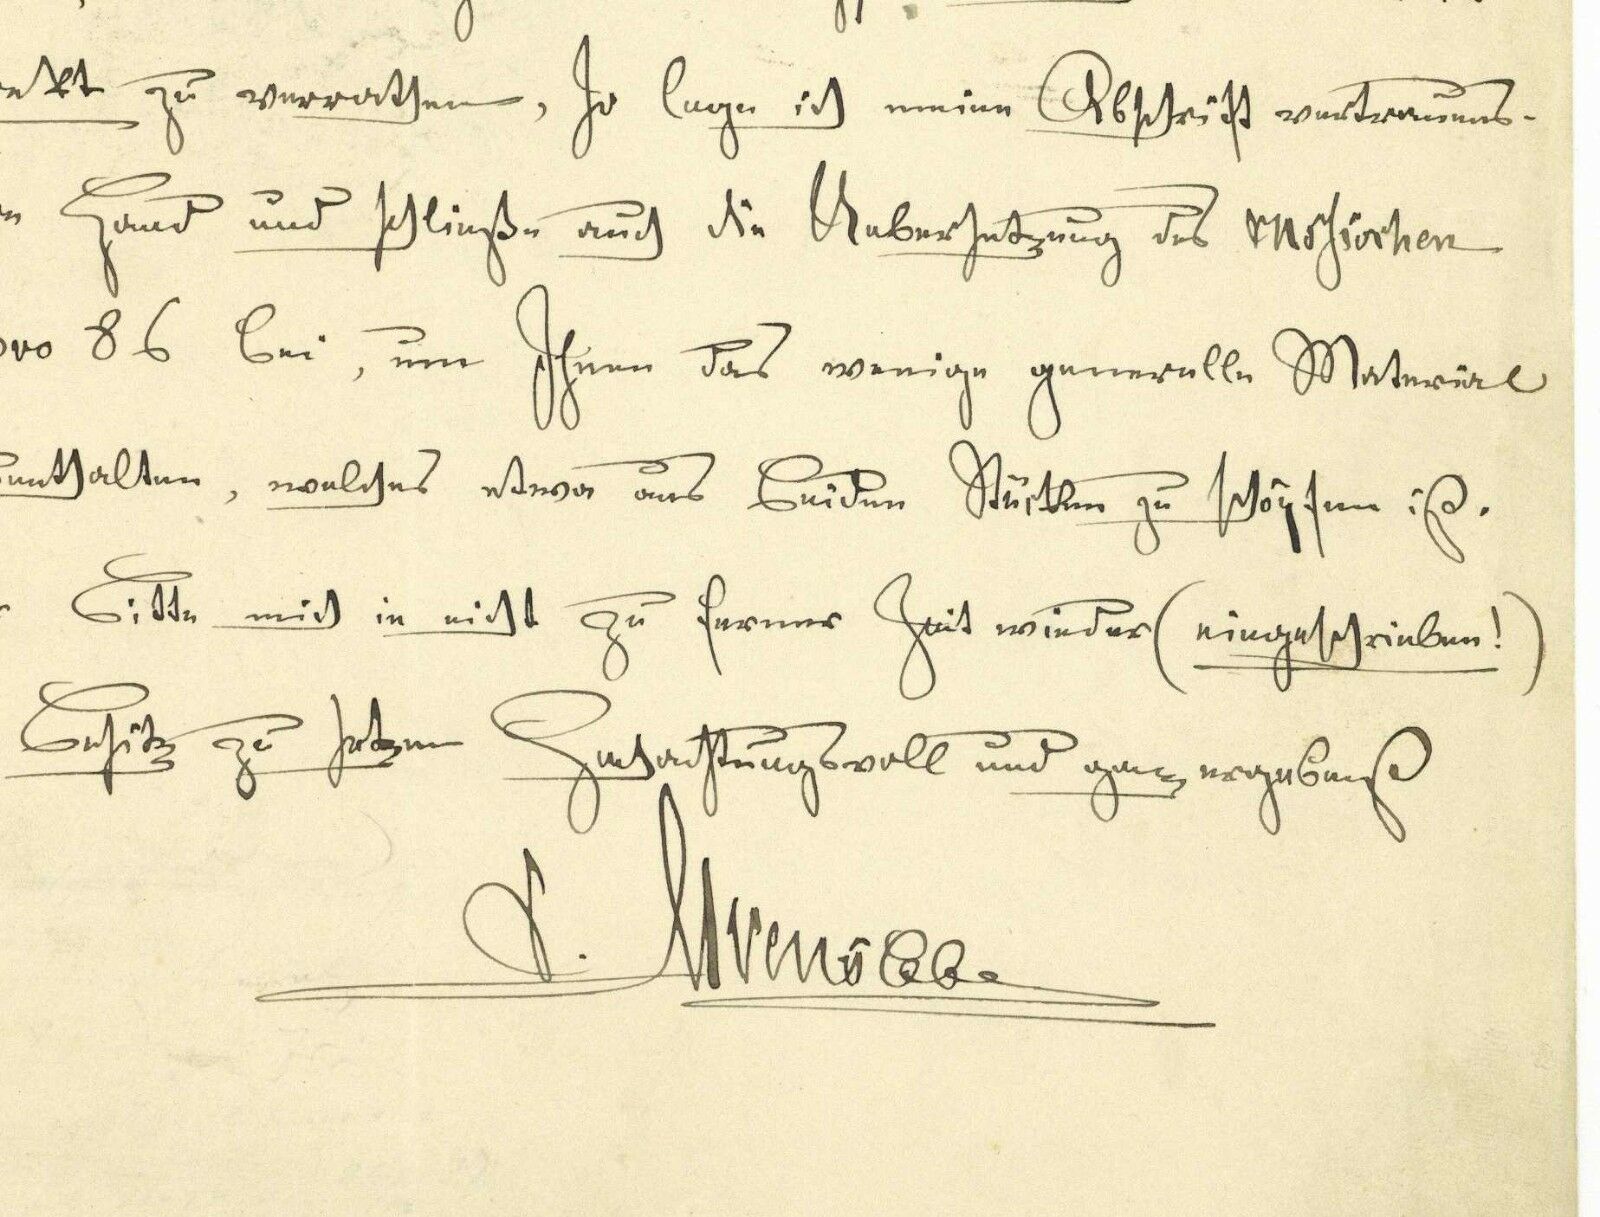 zu verrathen, so lege ich meine Abschrift vertrauens-
Hand und schließe auch die Uebersetzung des
pro 86 bei, um Ihnen das wenige generelle Material
enthalten, welches etwa aus beiden Stücken zu schöpfen ist.
bitte mich in nicht zu ferner Zeit wieder (eingeschrieben!)
Besitz zu setzen Hochachtungsvoll und ganz ergebenst